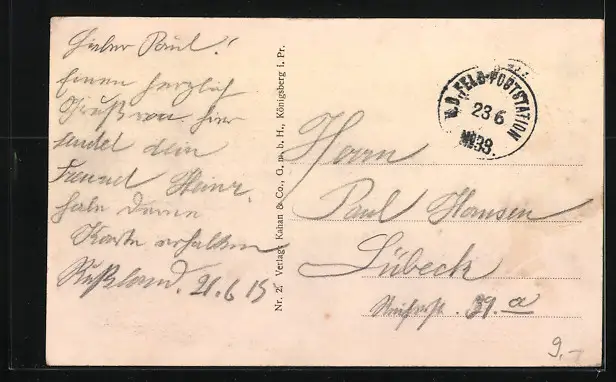 Lieber Paul!
Einen herzlich
Gruß von hier
sendet dein
Freund Heinr.
habe deine
Karte erhalten
Rußland. 21.6.15
Nr. 2. Verlag: Kahan & Co., G. m. b. H., Königsberg i. Pr.
K.D. FELD-POSTSTATION
23 6
No 33.
Herrn
Paul Hansen
Lübeck
39. a
9.-